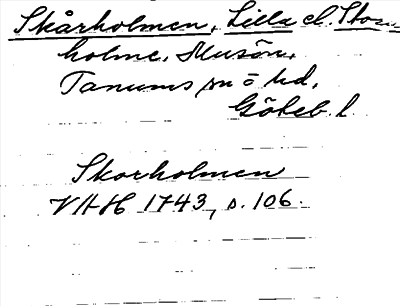 Skårholmen, Lilla el. Stora
holme, Musön,
Tanums sn o hd,
Göteb. l.
Skorholmen
VAH 1743, s. 106.